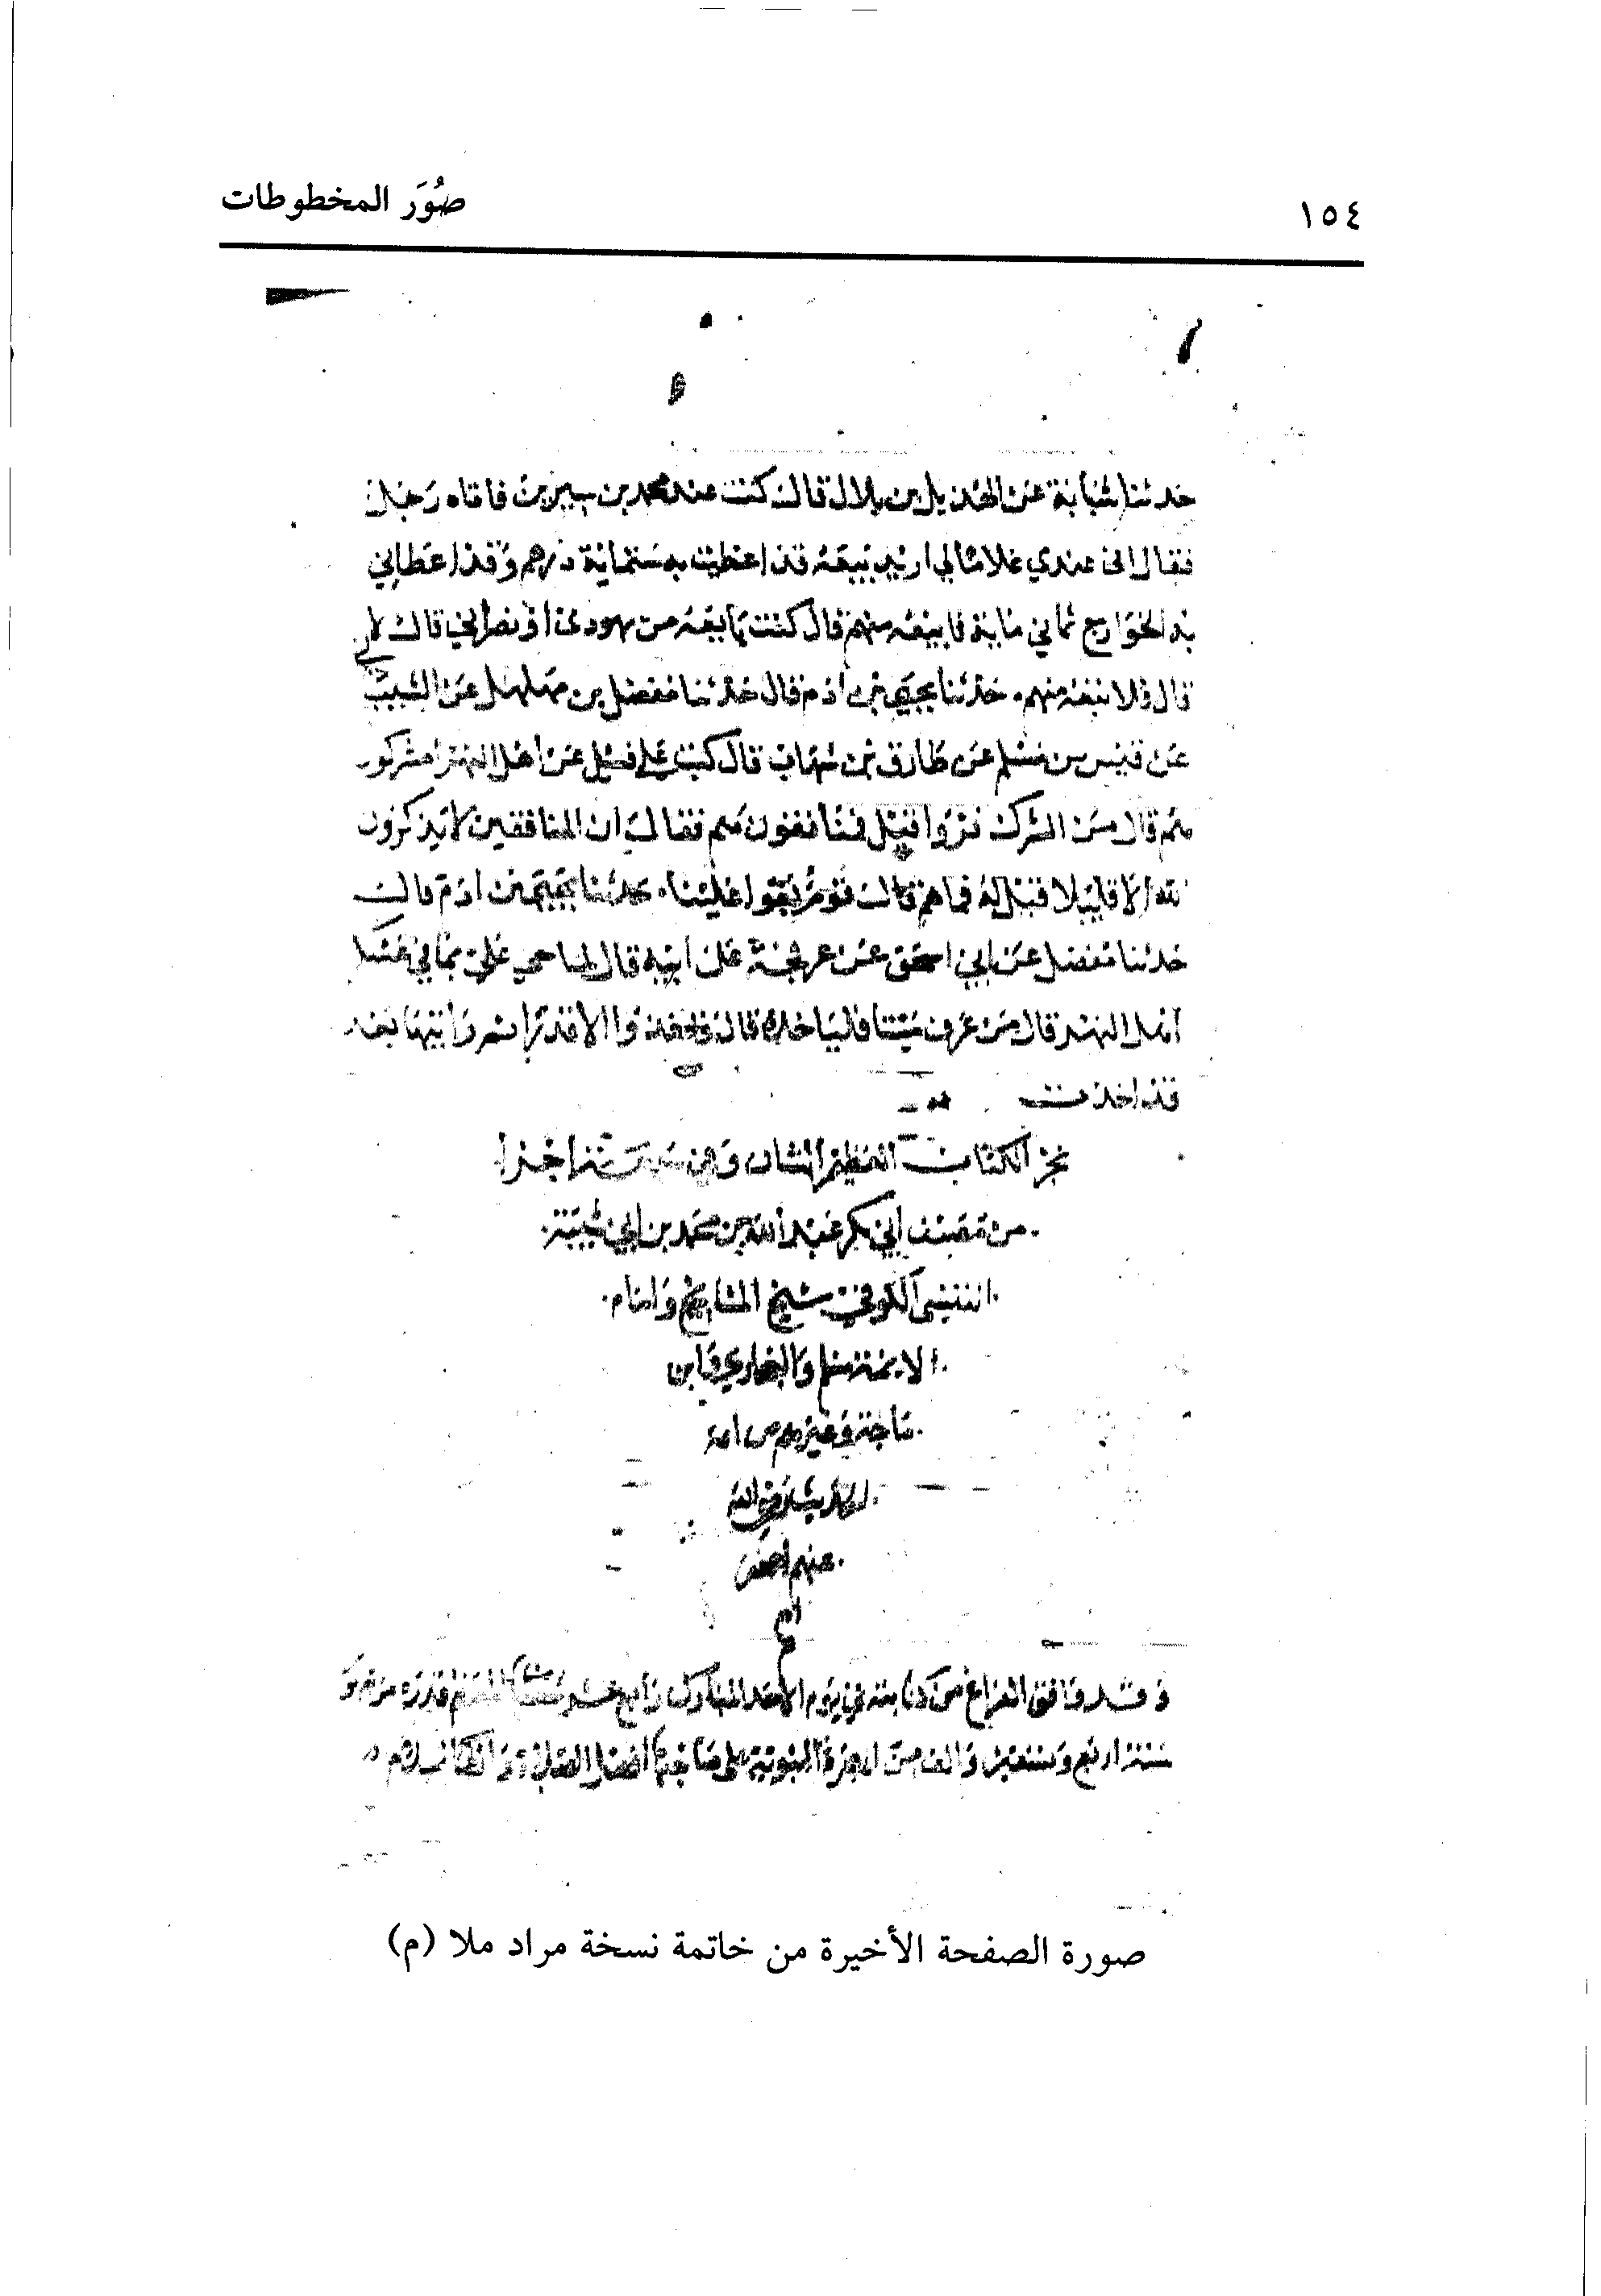 ١٥٤
صُوَر المخطوطات
حدثنا شبابة عن الهذيل بن بلال قال كنت عند محمد بن سيرين فاتاه رجل
فقال ان عندي غلاما لي اريد بيعه قد اعطيت به ستماية درهم وقد اعطاني
به الخوارج ثماني ماية فابيعه منهم قال كنت بايعه من يهودي او نصراني قال لا
قال فلا تبعه منهم . حدثنا يحيى بن ادم قال حدثنا مفضل بن مهلهل عن الشيباني
عن قيس بن مسلم عن طارق بن شهاب قال كنت عند علي فسئل عن اهل النهر امشركون
هم قال من الشرك فروا قيل فمنافقون هم فقال ان المنافقين لا يذكرون
الله الا قليلا قيل له فما هم قال قوم بغوا علينا . حدثنا يحيى بن ادم قال
حدثنا مفضل عن ابي اسحق عن عرفجة عن ابيه قال لما جي علي بما في عسكر
اهل النهر قال من عرف شيئا فلياخذه قال فاخذوا الا قدرا ثم رايتها بعد
قد اخذت
نجز الكتاب العظيم الشان وهو جزا
من مصنف ابي بكر عبد الله بن محمد بن ابي شيبة
العبسي الكوفي شيخ المشايخ وامام
الايمة مسلم والبخاري وابن
ماجة وغيرهم من ايمة
الحديث رضي الله
عنهم اجمعين
وقد وافق الفراغ من كتابته في يوم الاحد المبارك رابع عشر المعظم قدره من شهور
سنة اربع وسبعين والف من الهجرة النبوية على صاحبها افضل الصلاة والسلام
صورة الصفحة الأخيرة من خاتمة نسخة مراد ملا (م)